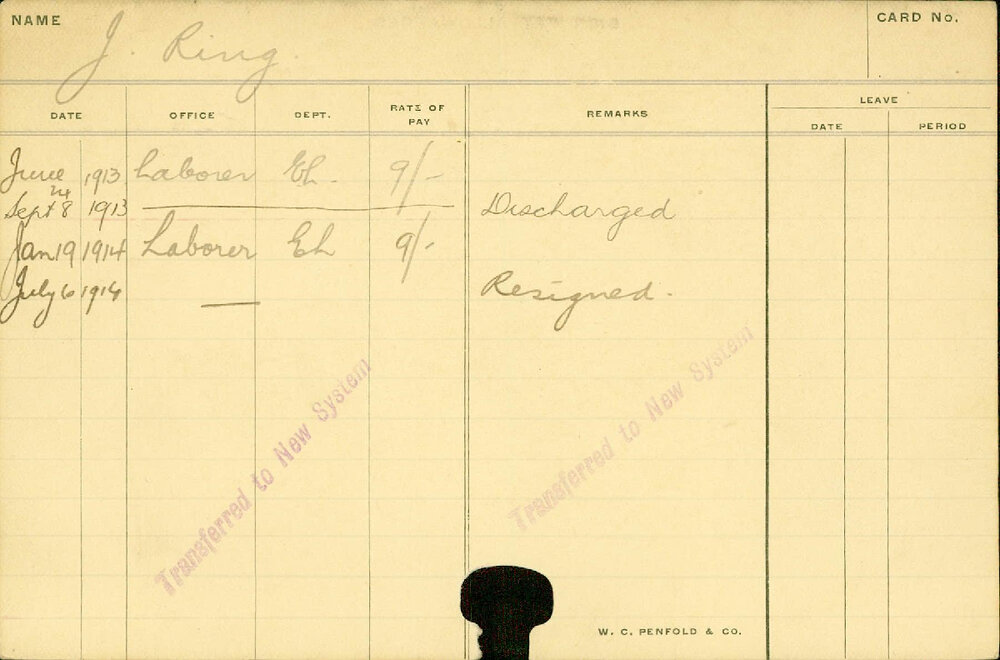 NAME
J. Ring.
CARD No.
DATE OFFICE DEPT. RATE OF PAY REMARKS LEAVE
DATE PERIOD
June 24 1913 Laborer Eh. 9/-
Sept 8 1913 Discharged
Jan 19 1914 Laborer Eh 9/-
July 6 1914 Resigned.
Transferred to New System
Transferred to New System
W. C. PENFOLD & CO.